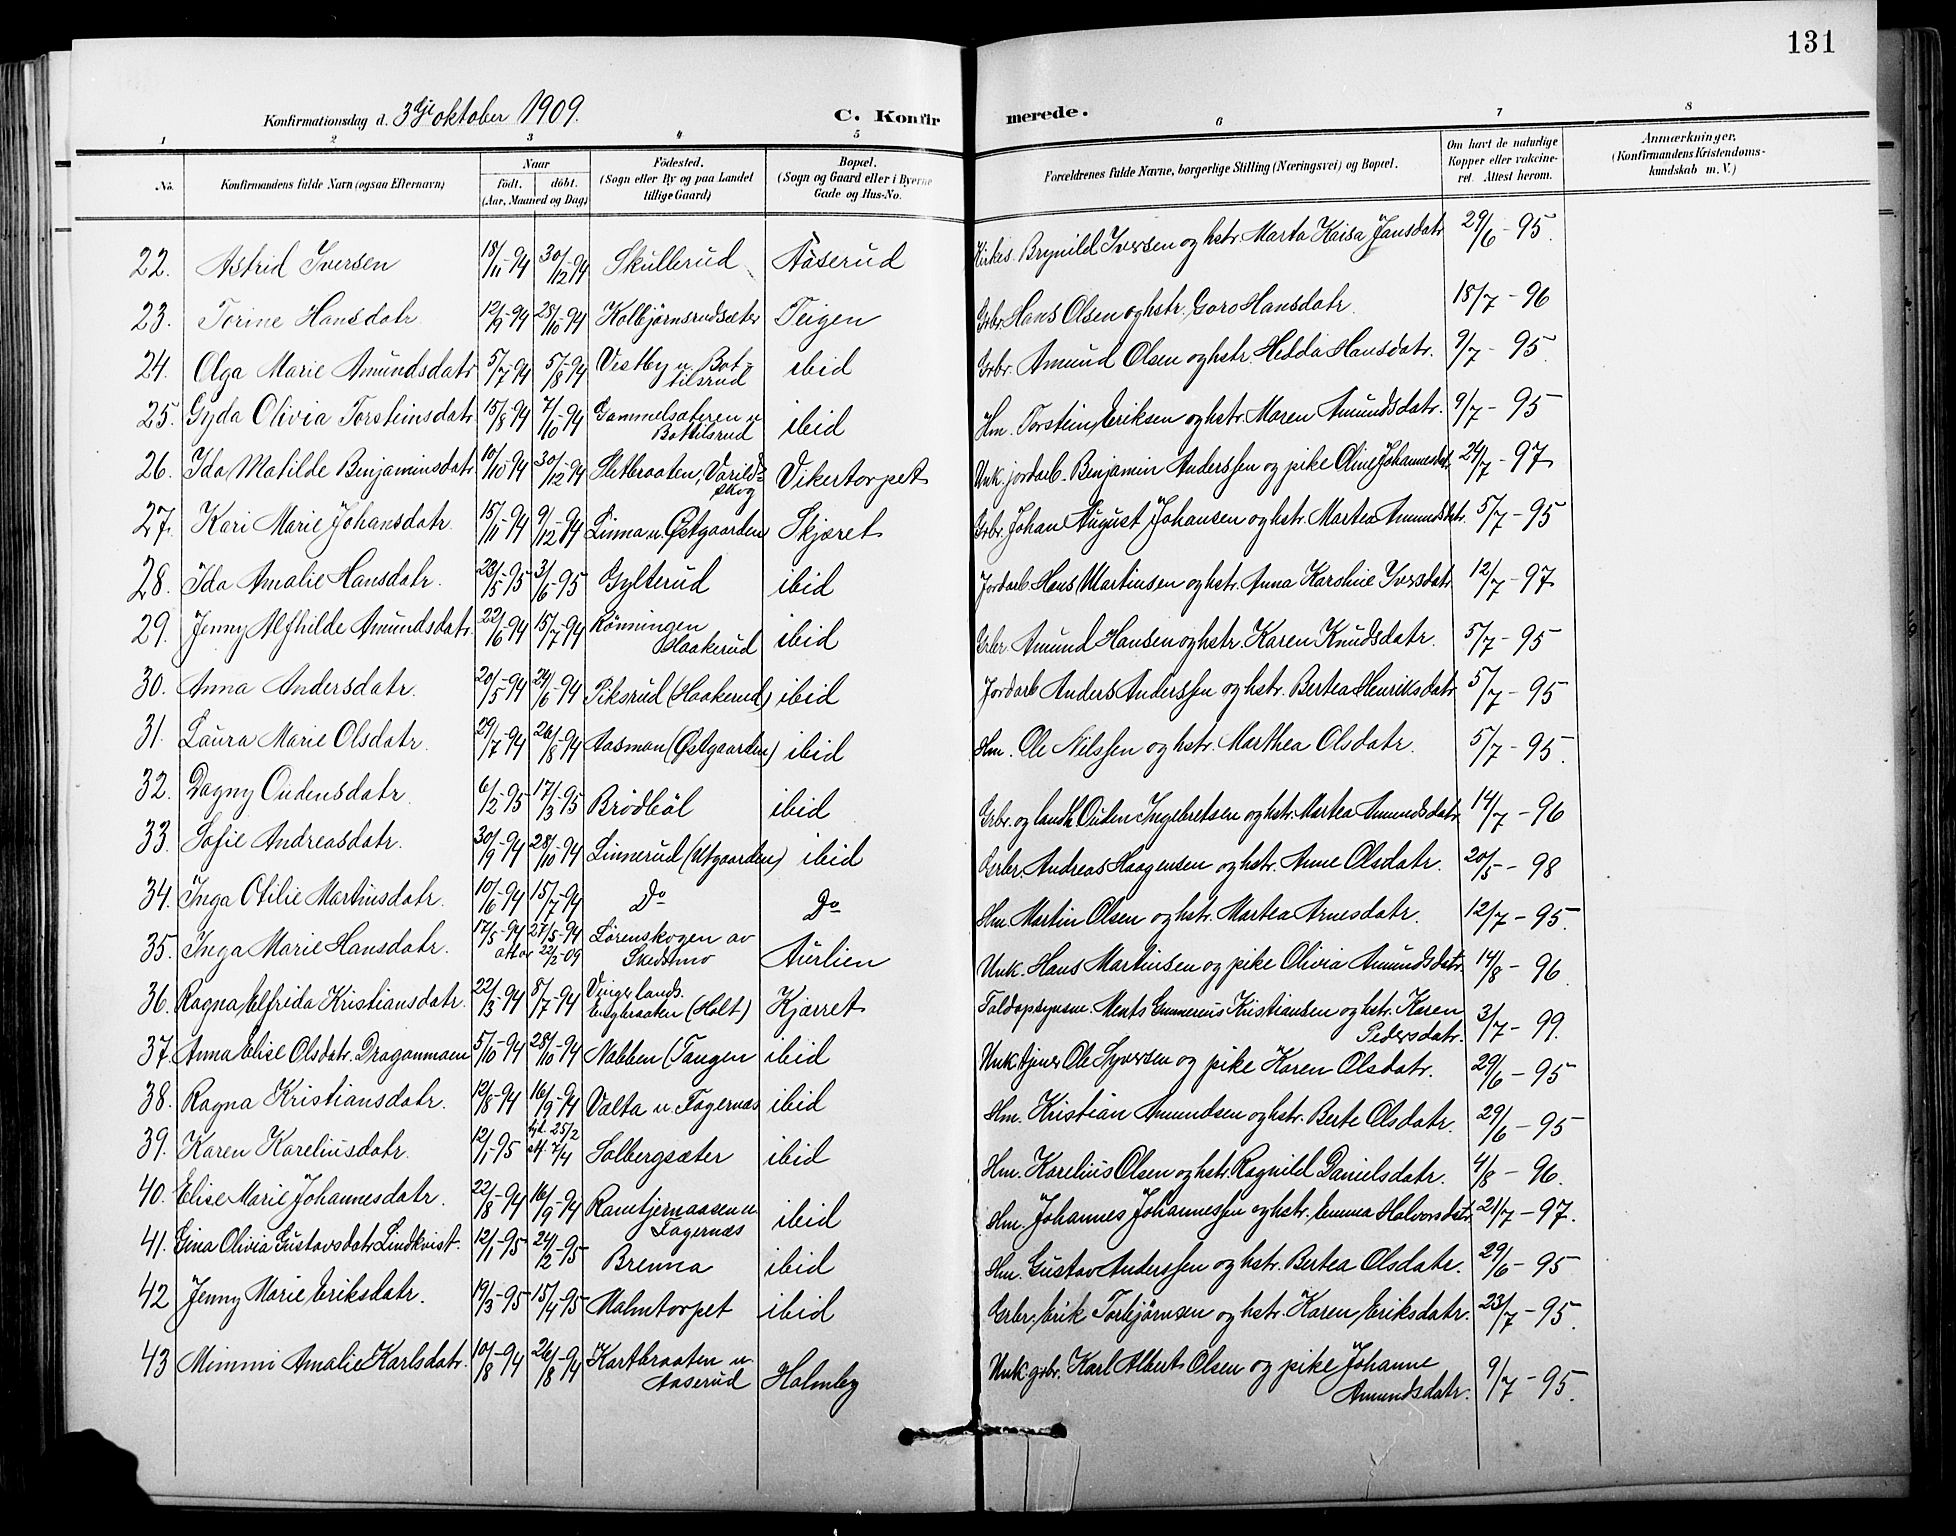 131
Konfirmationsdag d. 3dje oktober 1909.
C. Konfirmerede.
1 2 3 4 5 6 7 8
No. Konfirmandens fulde Navn (ogsaa Efternavn) Naar født. døbt. (Aar, Maaned og Dag) Fødested. (Sogn eller By og paa Landet tillige Gaard) Bopæl. (Sogn og Gaard eller i Byerne Gade og Hus-No. Forældrenes fulde Navne, borgerlige Stilling (Næringsvei) og Bopæl. Om havt de naturlige Kopper eller vakcineret. Attest herom. Anmærkninger. (Konfirmandens Kristendomskundskab m. V.)
22. Astrid Iversen 18/11-94 30/12-94 Skullerud Aaserud Kirkes. Brynild Iversen og hstr. Marta Kaisa Jansdatr 29/6-95.
23. Torine Hansdatr 12/9-94 28/10-94 Kolbjørnsrudsæter Teigen Grbr. Hans Olsen og hstr. Goro Hansdatr. 18/7-96
24. Olga Marie Amundsdatr 5/7-94 5/8-94 Vestby u. Bottilsrud ibid Grbr. Amund Olsen og hstr. Hedda Hansdatr. 9/7-95.
25. Gyda Olivia Torsteinsdatr 15/8-94 7/10-94 Gammelsæteren u Bottilsrud ibid Hm. Torstein Eriksen og hstr. Maren Amundsdatr. 9/7-95
26. Ida Matilde Benjaminsdatr 10/10-94 30/12-94 Sletbraaten, Varildskog Vikertorpet Unk. jordarb. Benjamin Anderssen og pike Oline Johannesdatr 24/7-97
27. Kari Marie Johansdatr. 15/11-94 9/12-94 Linna u. Østgaarden Skjæret Grbr. Johan August Johansen og hstr. Martea Amundsdatr. 5/7-95
28. Ida Amalie Hansdatr. 23/5-95 3/6-95 Gylterud ibid Jordarb. Hans Martinsen og hstr. Anna Karoline Iversdatr 12/7-97
29. Jenny Alfhilde Amundsdatr. 22/6-94 15/7-94 Rønningen Haakerud ibid Grbr. Amund Hansen og hstr. Karen Knudsdatr. 5/7-95
30. Anna Andersdatr. 20/5-94 24/6-94 Piksrud (Haakerud) ibid Jordarb Anders Anderssen og hstr. Bertea Henriksdatr 5/7-95
31. Laura Marie Olsdatr. 29/7-94 26/8-94 Aasman (Østgaarden) ibid Hm. Ole Nilssen og hstr. Marthea Olsdatr. 5/7-95.
32. Dagny Oudensdatr. 6/2-95 17/3-95 Brødbøl ibid Grbr. og landh. Ouden Ingebretsen og hstr. Martea Amundsdatr 14/7-96
33. Sofie Andreasdatr. 30/9-94 28/10-94 Linnerud (Utgaarden) ibid Grbr. Andreas Haagensen og hstr. Anne Olsdatr. 20/5-98
34. Inga Otilie Martinsdatr. 10/6-94 15/7-94 Do Do Hm. Martin Olsen og hstr. Martea Arnesdatr. 12/7-95.
35. Inga Marie Hansdatr. 17/5-94 27/5-94 att av 22/2-09 Lørenskogen av Skedsmo Aurlien Unk. Hans Martinsen og pike Olivia Amundsdatr. 14/8-96
36. Ragna Elfrida Kristiansdatr. 22/3-94 8/7-94 Vinger lands. Engbraaten (Holt) Kjærret Toldopsynsm. Ments Gunnerius Kristiansen og hstr. Karen Pedersdatr. 3/7-99.
37. Anna Elise Olsdatr. Draganmoen 5/10-94 28/10-94 Nabben (Tangen ibid Unk tjener Ole Syversen og pike Karen Olsdatr. 29/6-95
38. Ragna Kristiansdatr. 12/8-94 16/9-94 Valta u. Fagernæs ibid Hm. Kristian Amundsen og hstr. Berte Olsdatr. 29/6-95
39. Karen Kareliusdatr. 12/1-95 hjd. 25/2 stf. 7/4 Solbergsæter ibid Hm. Karelius Olsen og hstr. Ragnild Danielsdatr. 4/8-96.
40. Elise Marie Johannesdatr. 22/8-94 16/9-94 Ramtjernaasen u. Fagernæs ibid Hm. Johannes Johannessen og hstr. Emma Halvorsdatr 21/7-97.
41. Gina Olivia Gustavsdatr Lindkvist. 12/1-95 24/2-95 Brenna ibid Hm. Gustav Anderssen og hstr. Bertea Olsdatr. 29/6-95
42 Jenny Marie Eriksdatr. 19/3-95 15/4-95 Malmtorpet ibid Grbr. Erik Torbjørnsen og hstr. Karen Eriksdatr. 23/7-95.
43 Mimmi Amalie Karlsdatr. 10/8-94 26/8-94 Kartbraaten u. Aaserud Holmby Unk. grbr. Karl Albert Olsen og pike Johanne Amundsdatr. 9/7-95.